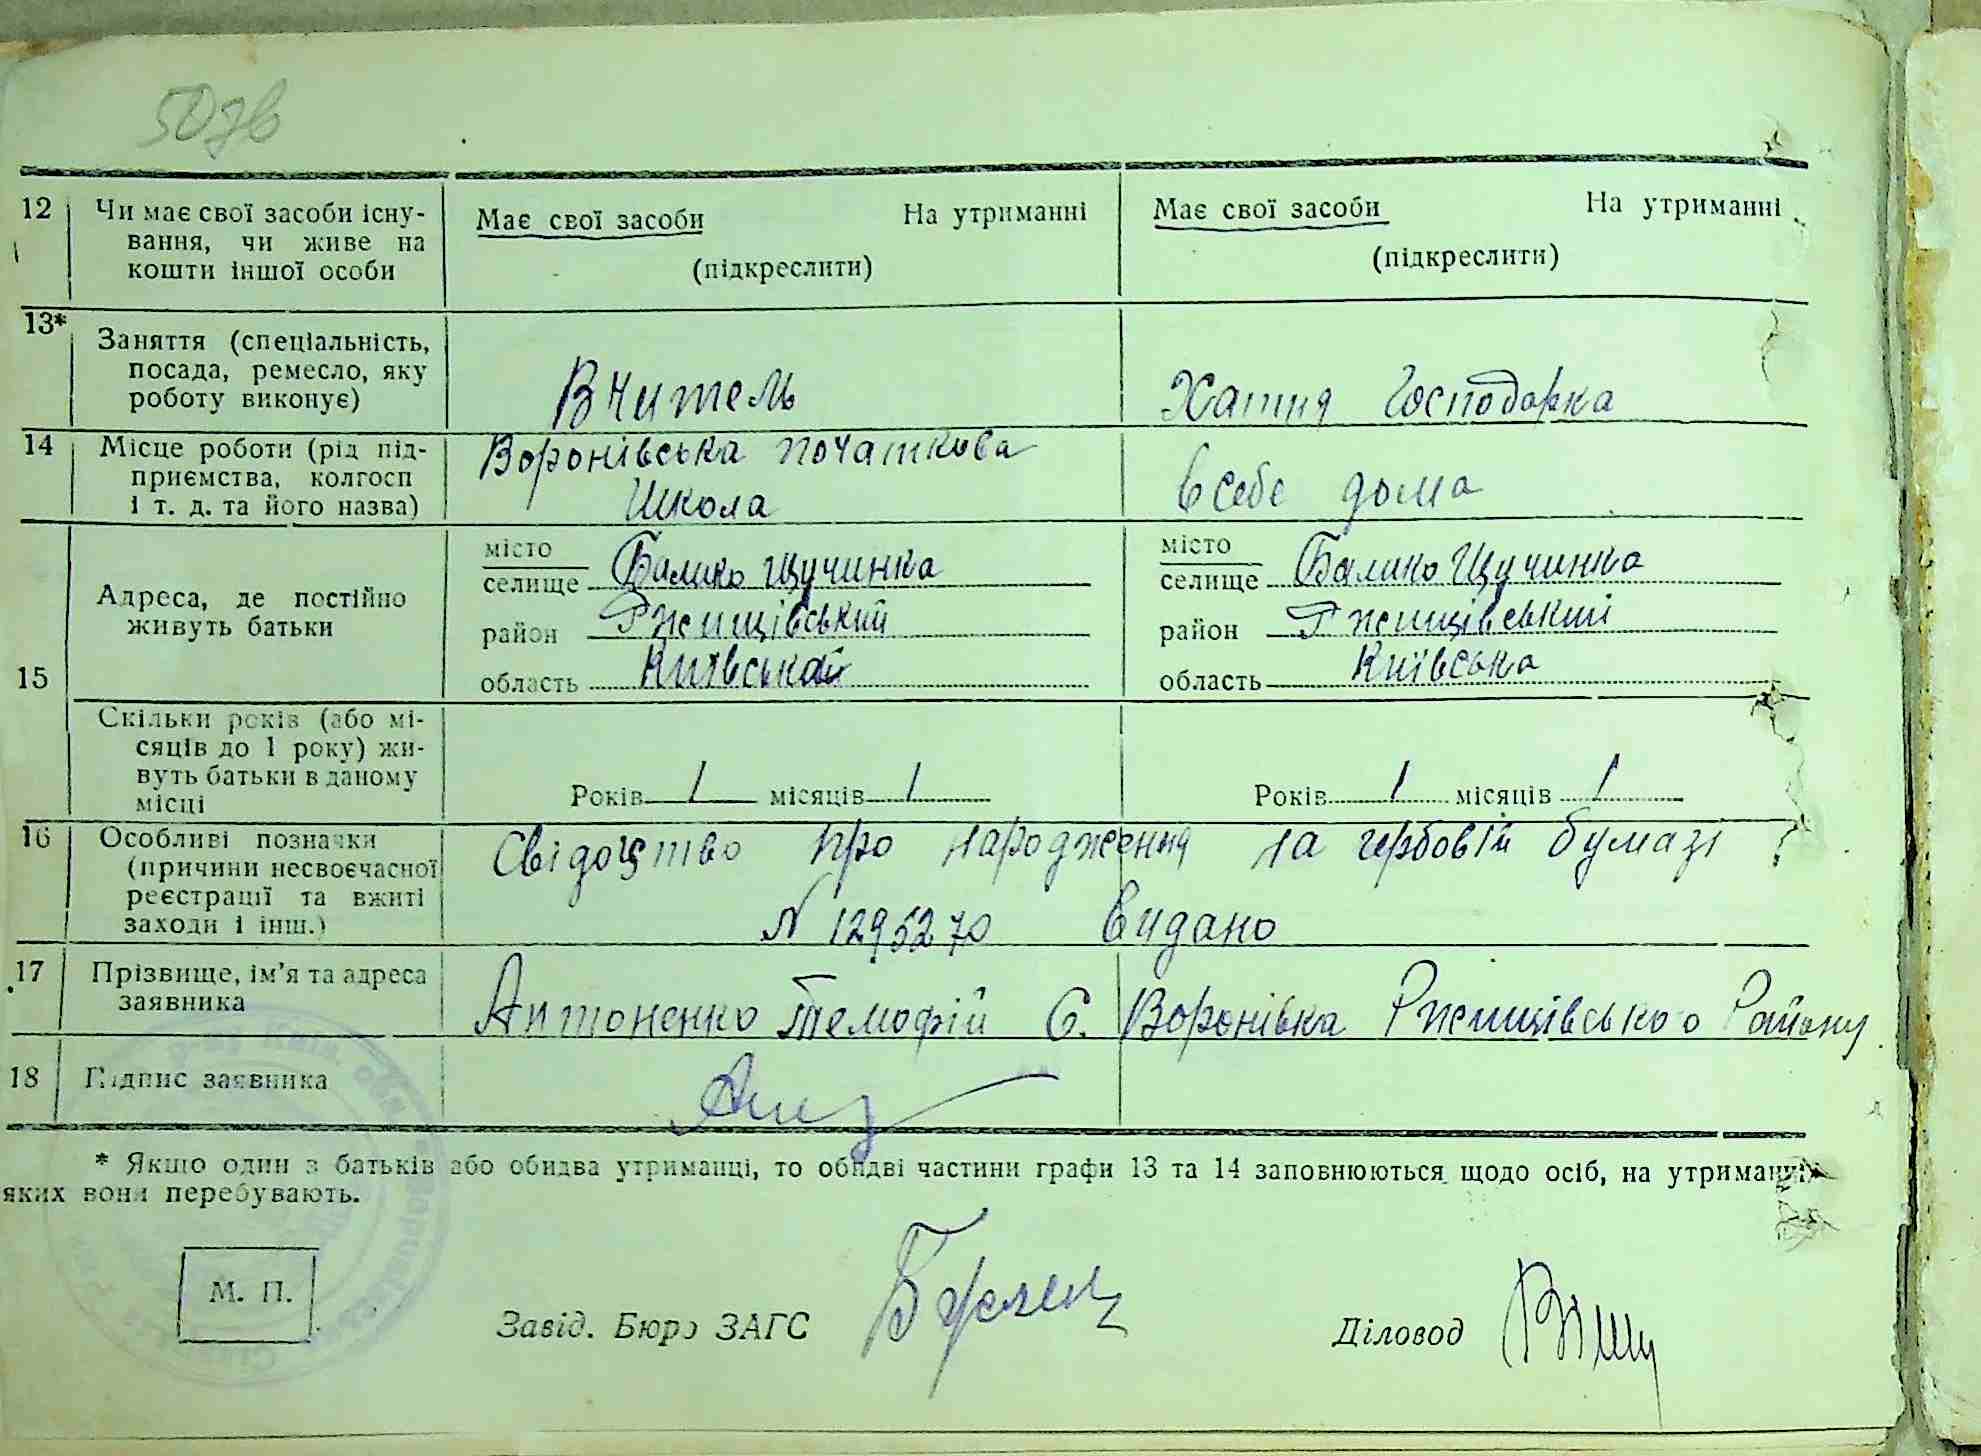 507в
12 Чи має свої засоби існу- Має свої засоби На утриманні Має свої засоби На утриманні
вання, чи живе на
кошти іншої особи (підкреслити) (підкреслити)
13* Заняття (спеціальність,
посада, ремесло, яку
роботу виконує) Вчитель Хатня Господорка
14 Місце роботи (рід під- Воронівська початкова
приємства, колгосп
і т. д. та його назва) Школа в себе дома
15 Адреса, де постійно
живуть батьки
місто
селище Балико Щучинка
район Ржищівський
область Київська
місто
селище Балико Щучинка
район Ржищівський
область Київська
Скільки років (або мі-
сяців до 1 року) жи-
вуть батьки в даному
місці Років 1 місяців 1 Років 1 місяців 1
16 Особливі позначки
(причини несвоєчасної
реєстрації та вжиті
заходи і інш.)
Свідоцтво про народження на гербовій бумазі
N 1295270 видано
17 Прізвище, ім'я та адреса
заявника Антоненко Темофій Є. Воронівка Ржищівського Району
18 Підпис заявника
* Якщо один з батьків або обидва утриманці, то обидві частини графи 13 та 14 заповнюються щодо осіб, на утриманні
яких вони перебувають.
М. П.
Завід. Бюро ЗАГС Діловод